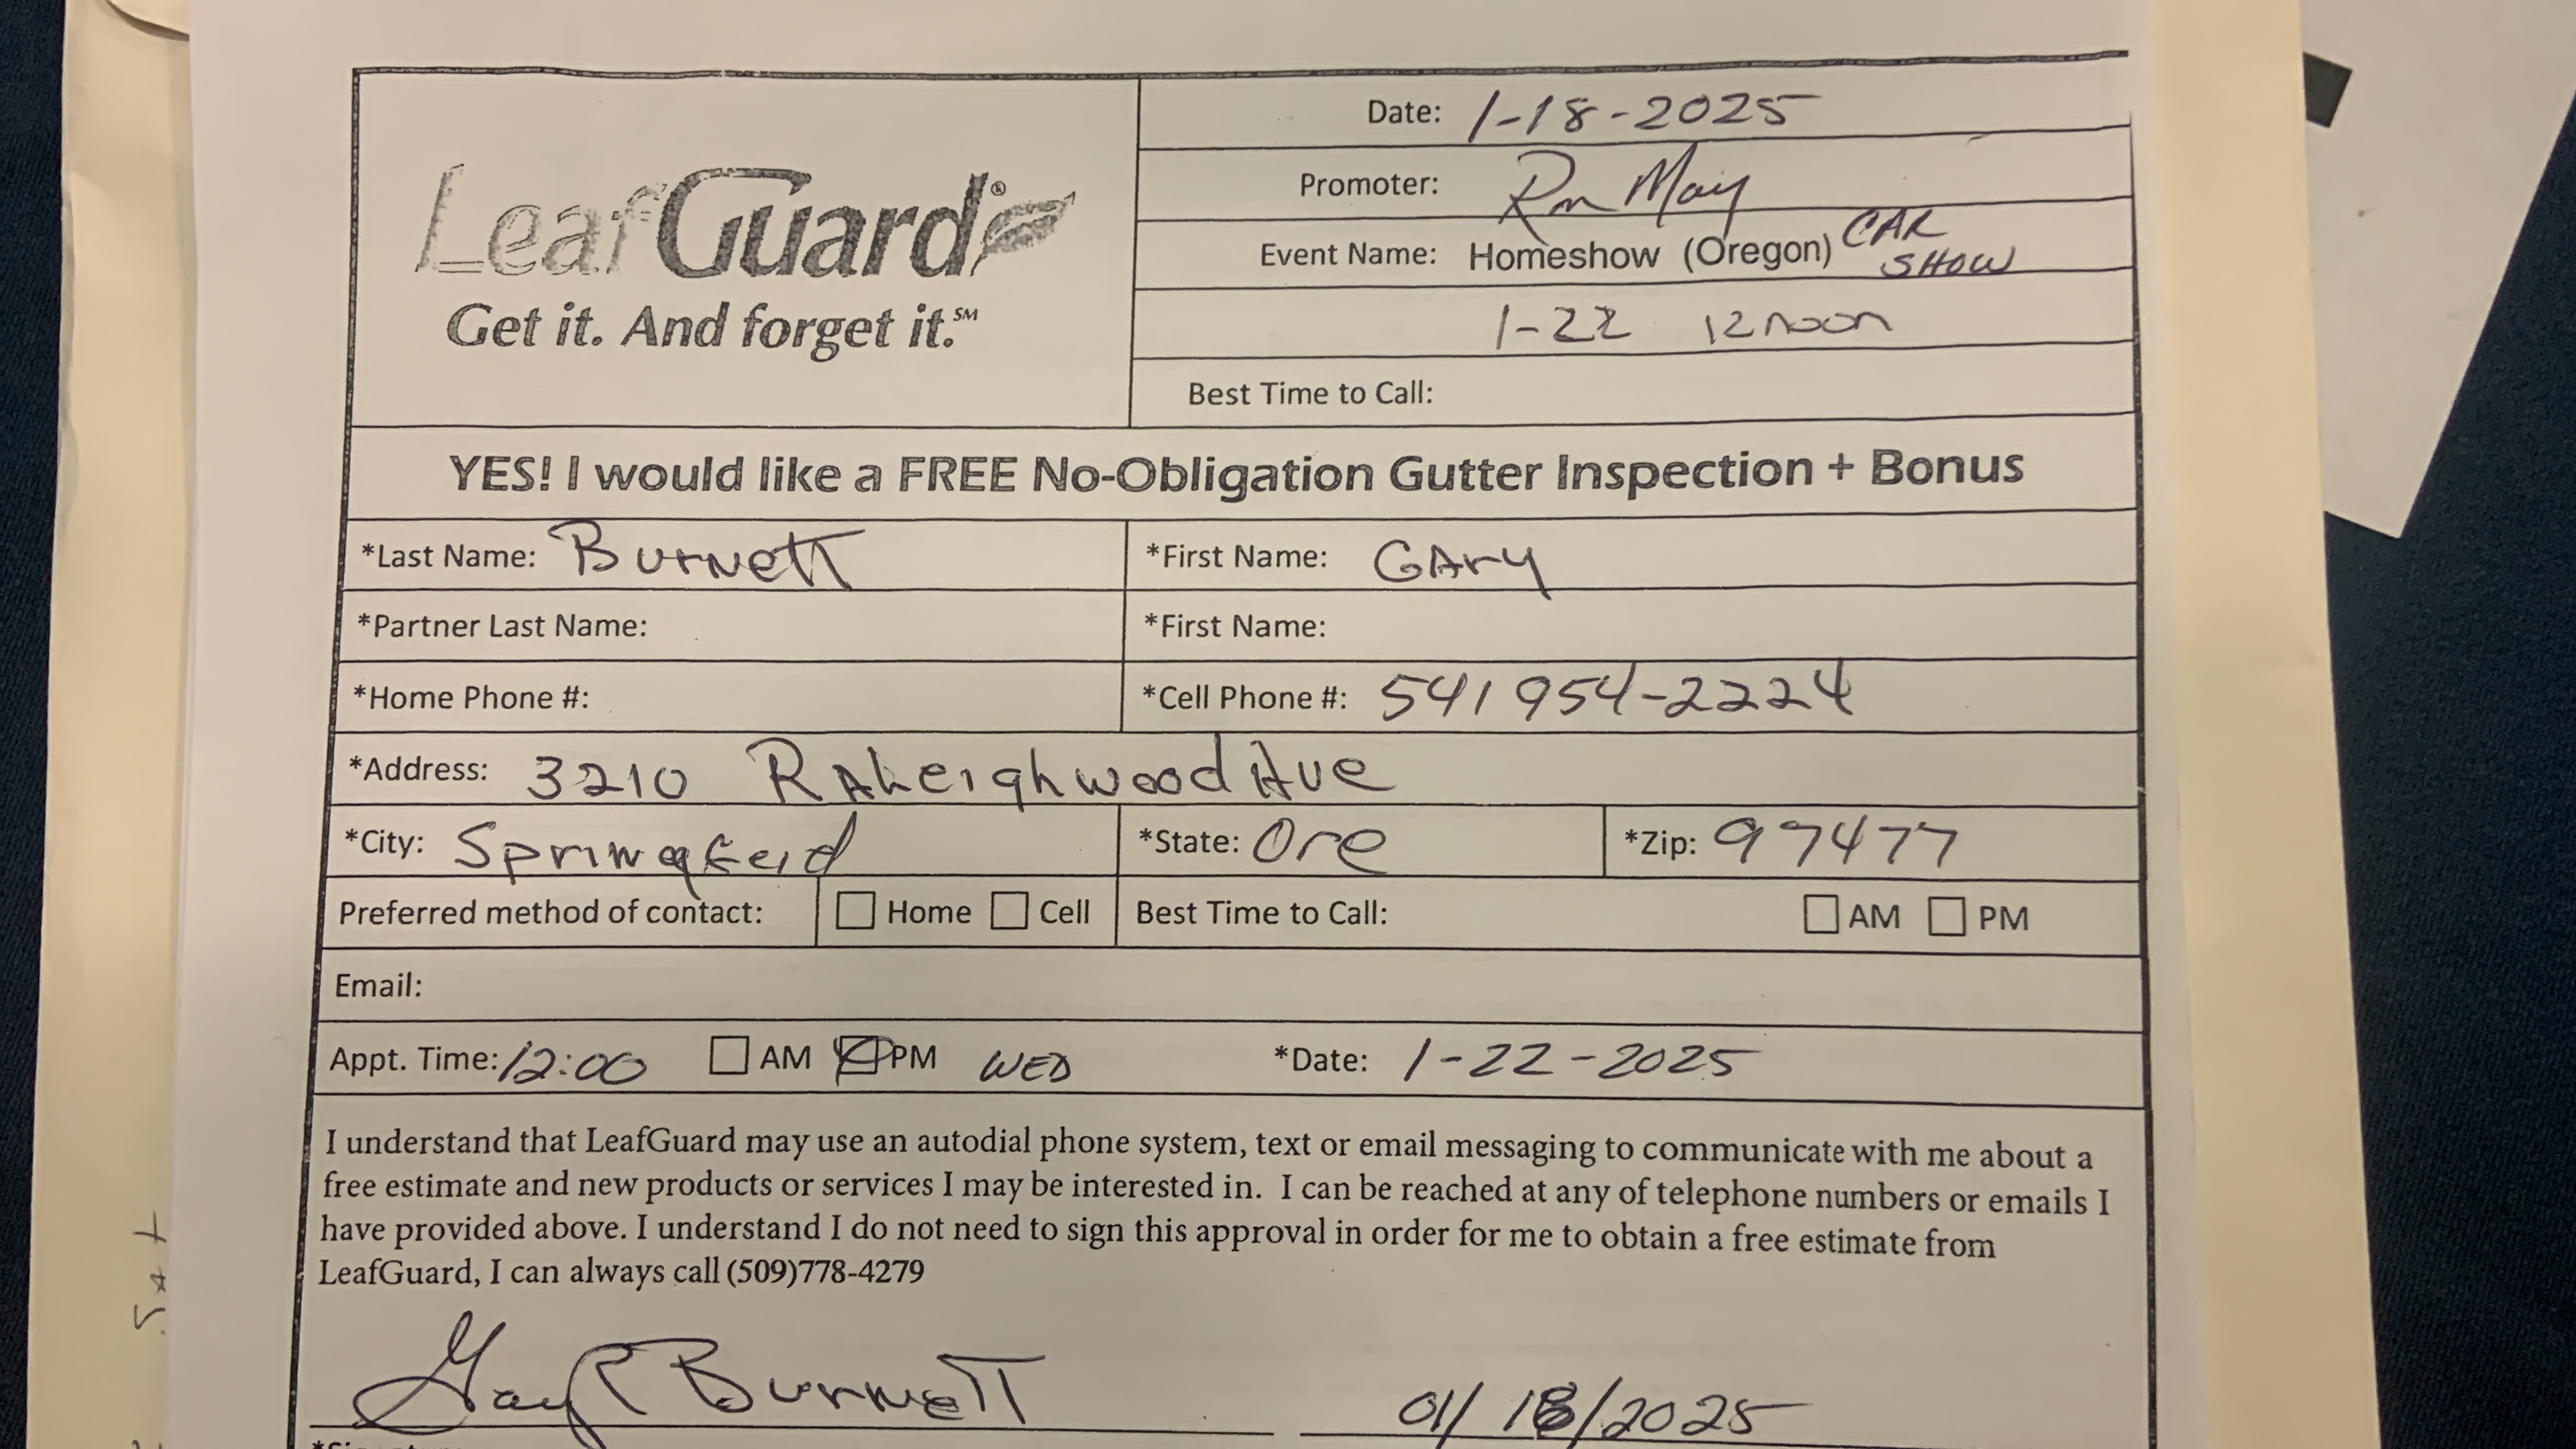 LeafGuard®
Get it. And forget it.℠
Date: 1-18-2025
Promoter:
Event Name: Homeshow (Oregon) CAR SHOW
1-22 12 noon
Best Time to Call:
YES! I would like a FREE No-Obligation Gutter Inspection + Bonus
*Last Name: Burnett *First Name: GAry
*Partner Last Name: *First Name:
*Home Phone #: *Cell Phone #: 541 954-2224
*Address: 3210 Raleighwood Ave
*City: *State: Ore *Zip: 97477
Preferred method of contact: Home Cell Best Time to Call: AM PM
Email:
Appt. Time: 12:00 AM PM WED *Date: 1-22-2025
I understand that LeafGuard may use an autodial phone system, text or email messaging to communicate with me about a
free estimate and new products or services I may be interested in. I can be reached at any of telephone numbers or emails I
have provided above. I understand I do not need to sign this approval in order for me to obtain a free estimate from
LeafGuard, I can always call (509)778-4279
Gary Burnett 01/18/2025